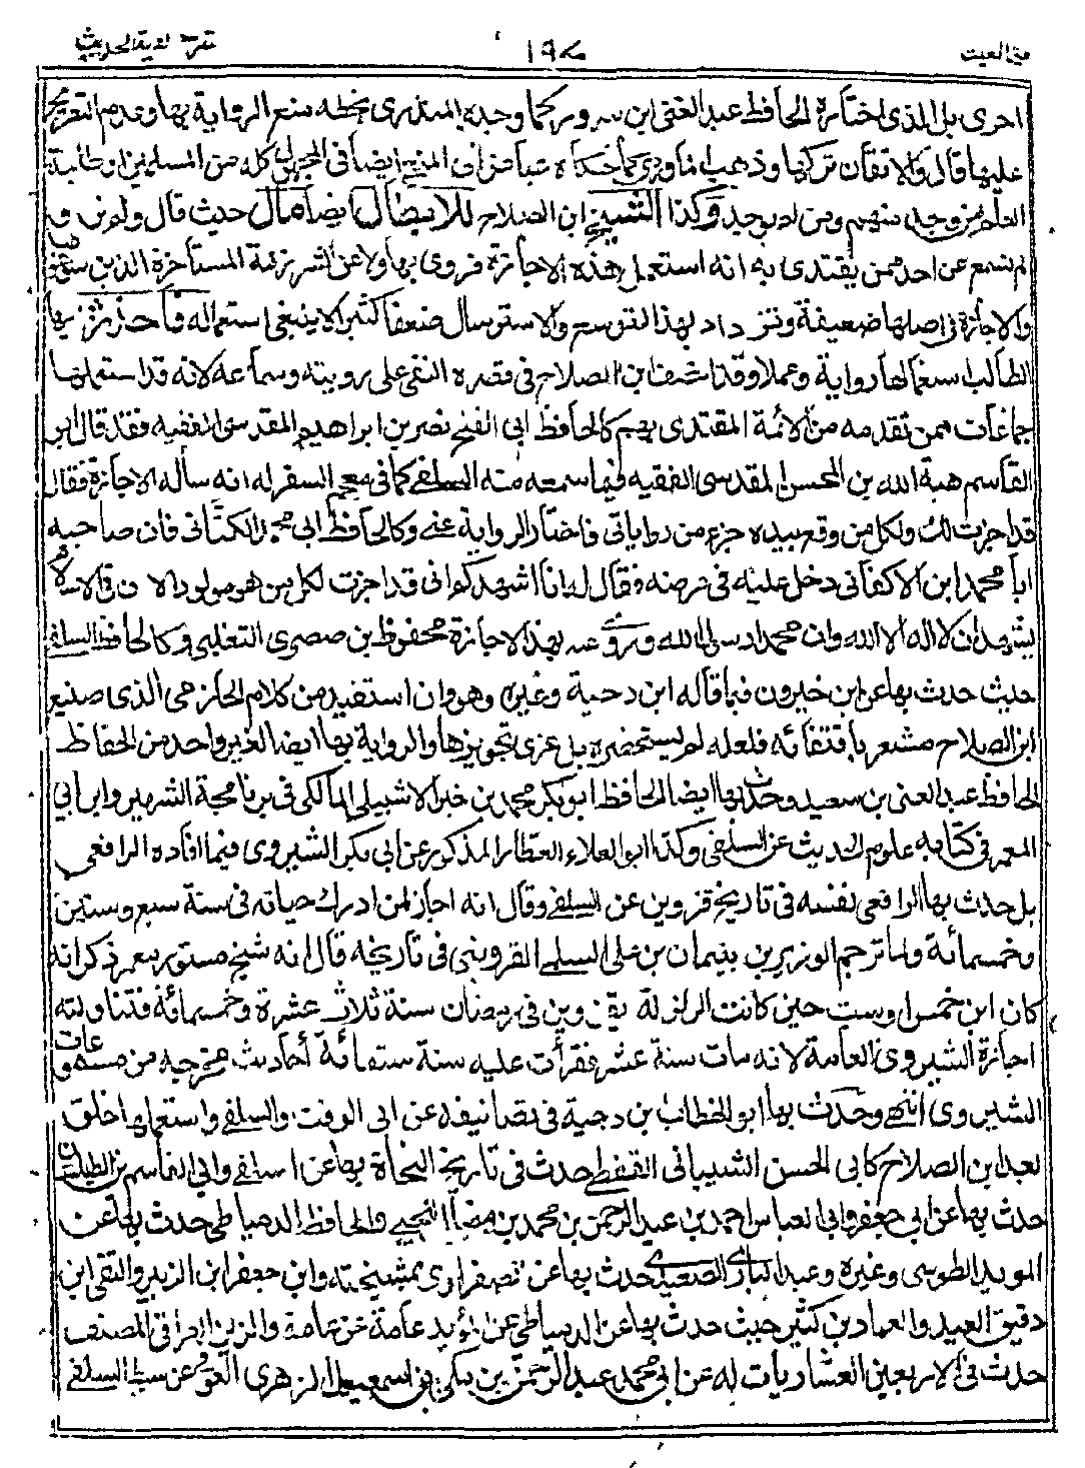 فتح المغيث ١٩٧ شرح الفية الحديث
احرى بل الذى اختاره الحافظ عبد الغنى ابن سرور كما وجده المنذرى بخطه منع الرواية بها وعدم التعريج
عليها قال والاتقان تركها وذهب الماوردى كما حكاه عياض الى المنع ايضا فى المجهول كله من المسلمين او طلبة
العلم من وجد منهم ومن لم يوجد وكذا الشيخ ابن الصلاح للابطال ايضا مال حيث قال ولم نر و
لم نسمع عن احد ممن يقتدى به انه استعمل هذه الاجازة فروى بها ولا عن الشرذمة المستأخرة الذين سوغوها
والاجازة فى اصلها ضعيفة وتزداد بهذا التوسع والاسترسال ضعفا كثيرا لا ينبغى استعماله فاحذر ايها
الطالب استعمالها رواية وعملا وقد انصف ابن الصلاح فى قصره النفى على رويته وسماعه لانه قد استعملها
جماعات ممن تقدمه من الائمة المقتدى بهم كالحافظ ابى الفتح نصر بن ابراهيم المقدسى الفقيه فقد قال ابو
القاسم هبة الله بن المحسن المقدسى الفقيه فيما سمعه منه السلفى كما فى معجم السفر له انه سأله الاجازة فقال
قد اجزت لك ولكل من وقع بيده جزء من رواياتى فاختار الرواية عنى وكالحافظ ابى محمد الكتانى فان صاحبه
ابا محمد ابن الاكفانى دخل عليه فى مرضه فقال له انا اشهدكم انى قد اجزت لكل من هو مولود الآن فى الاسلام
يشهد ان لا اله الا الله وان محمدا رسول الله وروى عنه بهذه الاجازة محفوظ بن صصرى التغلبى وكالحافظ السلفى
حيث حدث بها عن ابن خيرون فيما قاله ابن دحية وغيره وهو وان استفيد من كلام الحازمى الذى صنيع
ابن الصلاح مشعر باقتفائه فلعله لم يستحضره بل عزى تجويزها والرواية بها ايضا لغير واحد من الحفاظ
الحافظ عبد الغنى بن سعيد وحدث بها ايضا الحافظ ابو بكر محمد بن خير الاشبيلى المالكى فى برنامجه الشهير وابن ابى
المعمر فى كتابه علوم الحديث عن السلفى وكذا ابو العلاء العطار المذكور عن ابى بكر الشيروى فيما افاده الرافعى
بل حدث بها الرافعى نفسه فى تاريخ قزوين عن السلفى وقال انه اجاز لمن ادرك حياته فى سنة سبع وستين
وخمسمائة ولما ترجم الوزيرين بنيمان بن على السلمى القزوينى فى تاريخه قال انه شيخ مستور معمر ذكر انه
كان ابن خمس او ست حين كانت الزلزلة بقزوين فى رمضان سنة ثلاث عشرة وخمسمائة فتناولته
اجازة الشيروى العامة لانه مات سنة عشر فقرأت عليه سنة ستمائة أحاديث مخرجه من مسموعات
الشيروى انتهى وحدث بها ابو الخطاب بن دحية فى تصانيفه عن ابى الوقت والسلفى واستعملها خلق
بعد ابن الصلاح كابى الحسن الشيبانى القفطى حدث فى تاريخ النحاة بها عن السلفى وابى القاسم بن الطيلسان
حدث بها عن ابى جعفر وابى العباس احمد بن عبد الرحمن بن محمد بن مضا اللخمى والحافظ الدمياطى حدث بها عن
المويد الطوسى وغيره وعبد البارى الصعيدى حدث بها عن الصفراوى بمشيخته وابن جعفر ابن الزبير والتقى ابن
دقيق العيد والعماد بن كثير حيث حدث بها عن الدمياطى عن المؤيد عامة عن عامة والزين العراقى المصنف
حدث فى الاربعين العشاريات له عن ابى محمد عبد الرحمن بن مكى بن اسمعيل الزهرى العوفى عن سبط السلفى